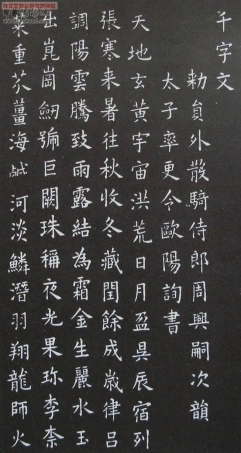 千字文
勑員外散騎侍郎周興嗣次韻
太子率更令歐陽詢書
天地玄黃宇宙洪荒日月盈昃辰宿列
張寒來暑往秋收冬藏閏餘成歲律呂
調陽雲騰致雨露結為霜金生麗水玉
出崑崗劒號巨闕珠稱夜光果珎李柰
菜重芥薑海鹹河淡鱗潛羽翔龍師火